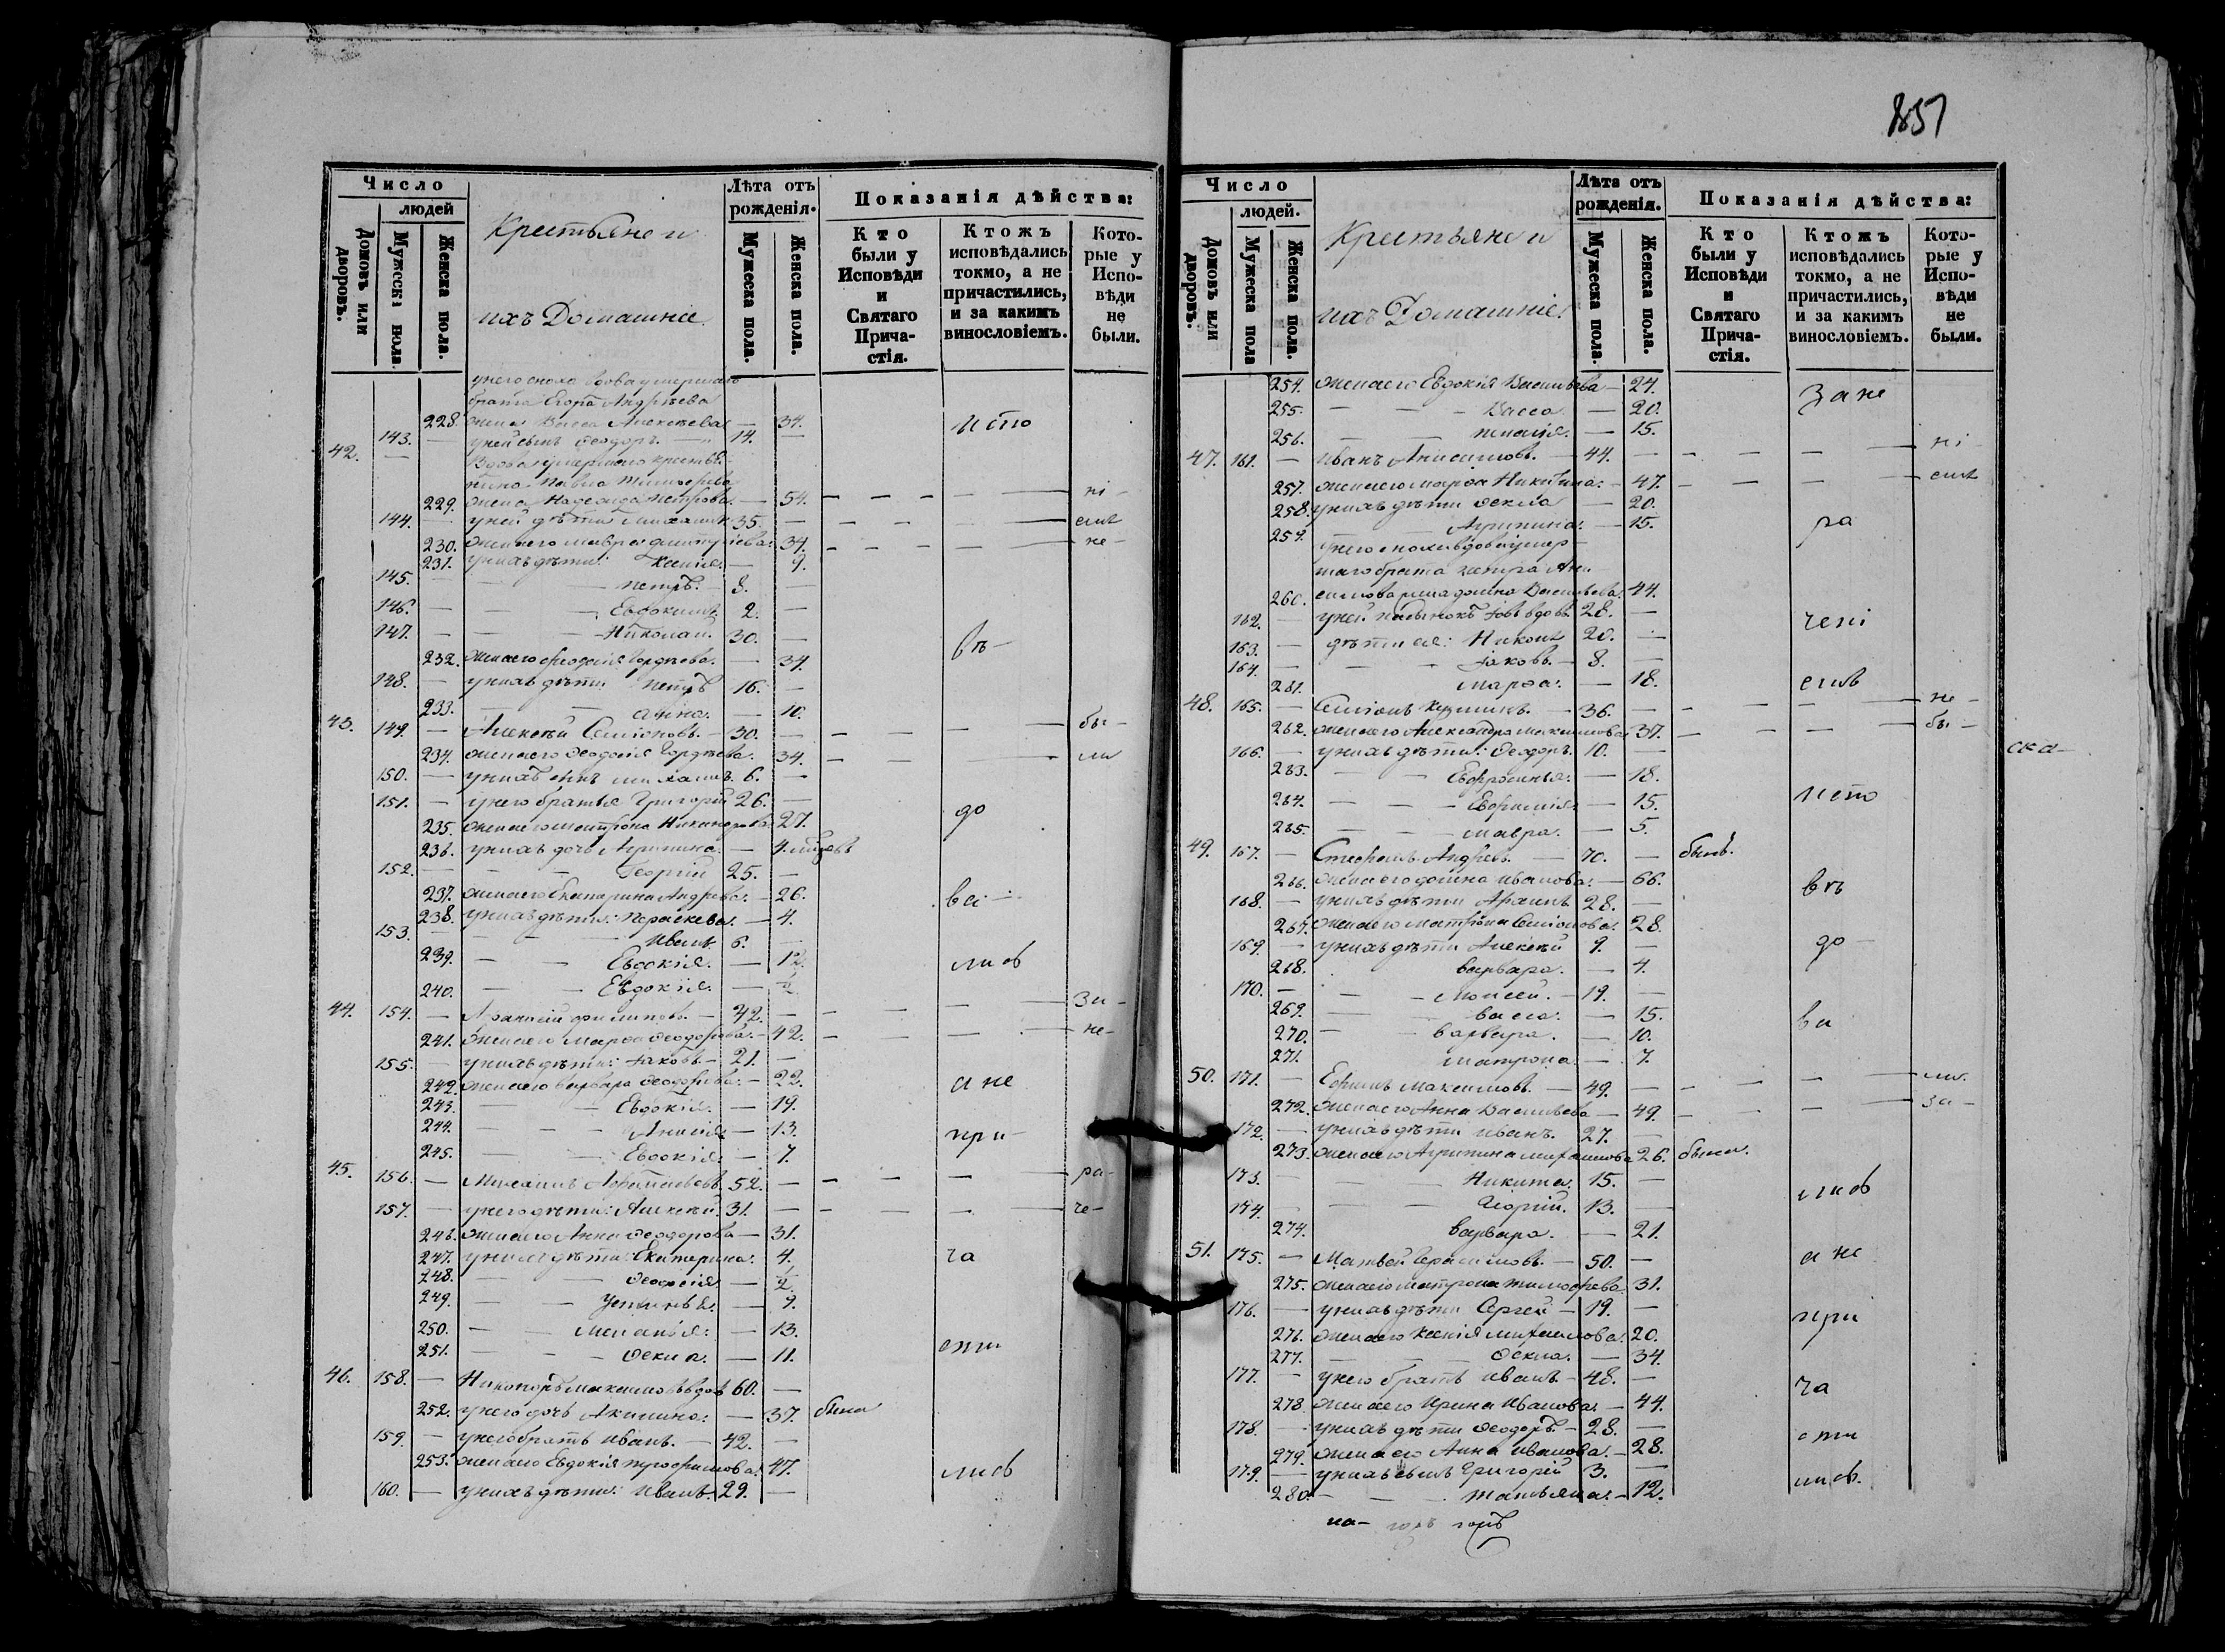 Число
людей
Домовъ или дворовъ.
Мужска пола.
Женска пола.
Крестьяне и
ихъ Домашніе.
Лѣта отъ рожденія.
Мужеска пола.
Женска пола.
Показанія дѣйства:
Кто были у Исповѣди и Святаго Прича-стія.
Ктожъ исповѣдались токмо, а не причастились, и за какимъ винословіемъ.
Кото-рые у Испо-вѣди не были.
у него сноха вдова умершаго
брата Егора Андрѣева
228. жена Васса Алексѣева — 34. исто
143. — у ней сынъ Ѳеодоръ. — 14. —
42. — Вдова умершаго крестья-
нина Павла Тимоѳеева
229. жена Надежда Петрова. — 54. — — — — ні-
144. — у ней дѣти Михаилъ 35. — — — — сит
230. жена его Мавра Димитріева: 34. — — — — не-
231. у нихъ дѣти: Ксенія. — 9.
145. — — — Петръ. — 8. —
146. — — — Евдокимъ. 2. —
147. — — — Николай. 30. — въ-
232. жена его Ѳеодосія Гордѣева. — 34.
148. — у нихъ дѣти: Петръ 16. —
233. — — Анна. — 10.
43. 149. — Алексѣй Семіоновъ. — 30. — — — — бы-
234. жена его Ѳеодосія Гордѣева. 34. — — — ли
150. — у нихъ сынъ Михаилъ. 6. —
151. — у него братья Григорій 26. — до
235. жена его Матрона Никифорова 27.
236. у нихъ дочь Агрипина. — 4. мѣсяцъ
152. — — — Георгій 25. —
237. жена его Екатерина Андрѣева. — 26. ва-
238. у нихъ дѣти: Параскева. — 4.
153. — — — Иванъ. 6. —
239. — — Евдокія. — 12. лись
240. — — Евдокія. — ½
44. 154. — Аѳанасій Филиповъ. — 42. — — — — За-
241. жена его Марѳа Ѳеодорова. — 42. — — — не-
155. — у нихъ дѣти: Іаковъ. — 21. —
242. жена его Варвара Ѳеодорова. — 22. а не
243. — — Евдокія. — 19.
244. — — — Анисія — 13. при-
245. — — Евдокія. — 7.
45. 156. — Михаилъ Аѳанасьевъ. 52. — — — — ра-
157. — у него дѣти: Алексѣй. 31. — — — — че-
246. жена его Анна Ѳеодорова — 31.
247. у нихъ дѣти: Екатерина. 4. ча
248. — — Ѳеодосія — ½
249. — — Устинья. — 9.
250. — — Меланья. — 13.
251. — — — Ѳекла. — 11. сти
46. 158. — Никаноръ Максимовъ вдовъ 60. —
252. у него дочь Акилина. — 37. была
159. — у него братъ Иванъ. — 42. —
253. жена его Евдокія Трофимова. 47. лись
160. — у нихъ дѣти: Иванъ. 29. —
1857
Число
людей.
Домовъ или дворовъ.
Мужеска пола
Женска пола.
Крестьяне и
ихъ Домашніе.
Лѣта отъ рожденія.
Мужеска пола.
Женска пола.
Показанія дѣйства:
Кто были у Исповѣди и Святаго Прича-стія.
Ктожъ исповѣдались токмо, а не причастились, и за какимъ винословіемъ.
Кото-рые у Испо-вѣди не были.
254. жена его Евдокія Васильева — 24. За не
255. — — — Васса. — 20.
256. — — — — 15.
47. 161. — Иванъ Анисимовъ. — 44. — — — — ні-
257. жена его Марѳа Никитина. — 47. — — —
258. у нихъ дѣти Ѳекла — 20.
259. Агрипина. — 15. ра
у него сноха вдова умер-
шаго брата Петра Ани-
260. симова Домна Васильева. 44.
162. — у ней пасынокъ Іовъ вдовъ. 28. — чені
163. — дѣти ея: Никонъ 20. —
164. — — — Іаковъ. — 8. —
261. Марѳа. — 18. емъ
48. 165. — Семіонъ Кузминъ. — 36. — — — — не-
262. жена его Александра Максимова 37. — — — бы-
166. — у нихъ дѣти: Ѳеодоръ. 10. —
ска-
263. — — Евфросинья. — 18.
264. — — — Евфимія. — 15. исто
265. — — — Мавра. — 5.
49. 167. — Стефанъ Андрѣевъ. — 70. — былъ.
266. жена его Домна Иванова. — 66. въ
168. — у нихъ дѣти Архипъ 28. —
267. жена его Матрона Семіонова. 28.
169. — у нихъ дѣти Алексѣй 9. — до-
268. Варвара. — 4.
170. — — — Моисей. — 19. —
269. — — Васса. — 15. ва
270. — — Варвара. — 10.
271. Матрона. — 7.
50. 171. — Ефимъ Максимовъ. — 49. — — — — ли.
272. жена его Анна Васильева — 49. — — — за-
172. — у нихъ дѣти Иванъ. 27. —
273. жена его Агрипина Михаилова 26. была.
173. — — — Никита. 15. — лись
174. — — — Георгій. 13. —
274. Варвара. — 21.
51. 175. — Матвей Герасимовъ. — 50. — а не
275. жена его Матрона Тимоѳеева. 31.
176. — у нихъ дѣти Сергей — 19. — при
276. жена его Ксенія Михаилова. 20.
277. — — — Ѳекла. — 34.
177. — у него братъ Иванъ. — 48. — ча
278. жена его Ирина Иванова. — 44.
178. — у нихъ дѣти Ѳеодоръ. — 28. — сти
279. жена его Анна Иванова. — 28.
179. — у нихъ сынъ Григорій 3. — лись.
280. — — — Татьяна. — 12.